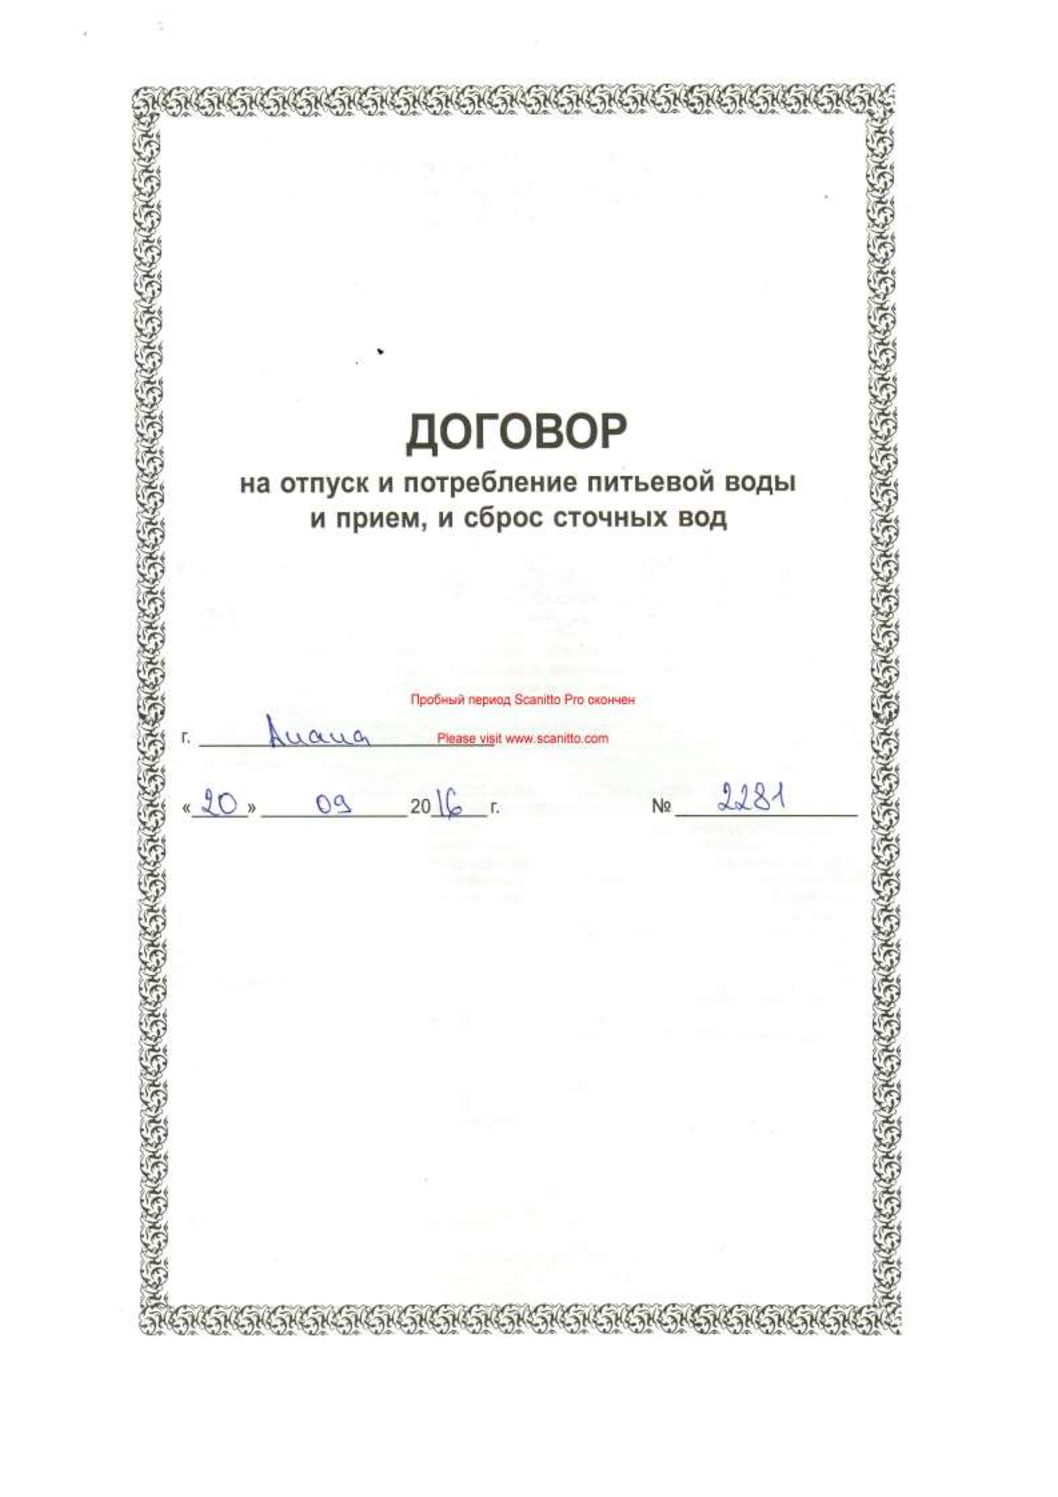 ДОГОВОР
на отпуск и потребление питьевой воды
и прием, и сброс сточных вод
Пробный период Scanitto Pro окончен
г. Анапа
Please visit www.scanitto.com
«20» 09 2016 г. № 2281